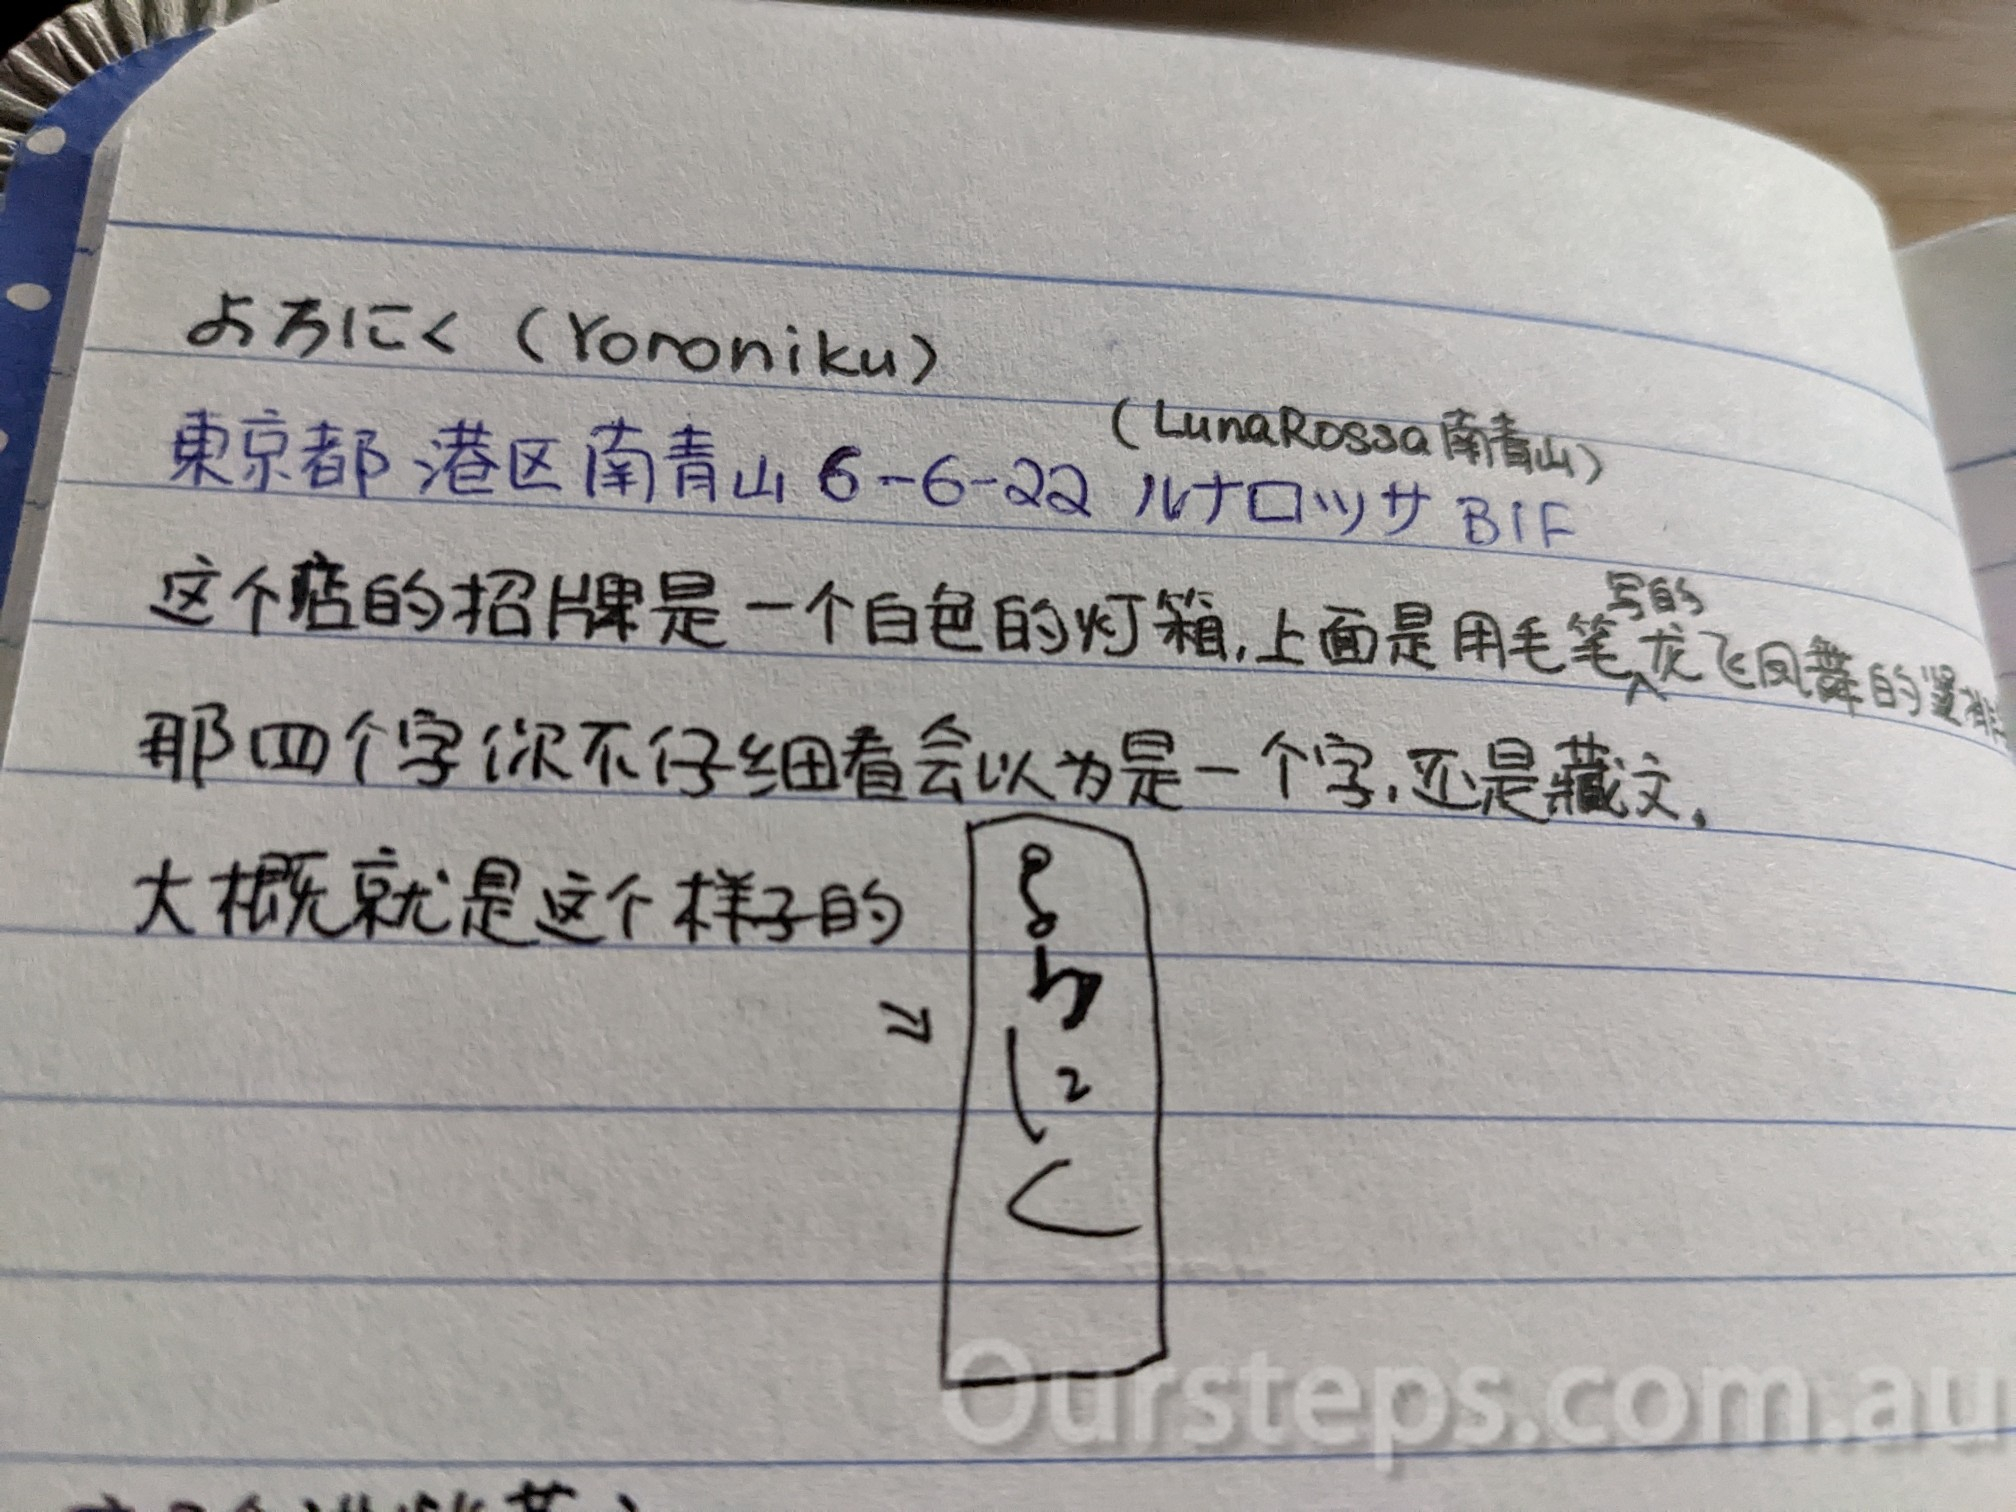 よろにく (Yoroniku)
(LunaRossa南青山)
東京都 港区南青山 6-6-22 ルナロッサ B1F
这个店的招牌是一个白色的灯箱,上面是用毛笔写的龙飞凤舞的竖排
那四个字你不仔细看会以为是一个字,还是藏文.
大概就是这个样子的
よ
ろ
に
く
Oursteps.com.au